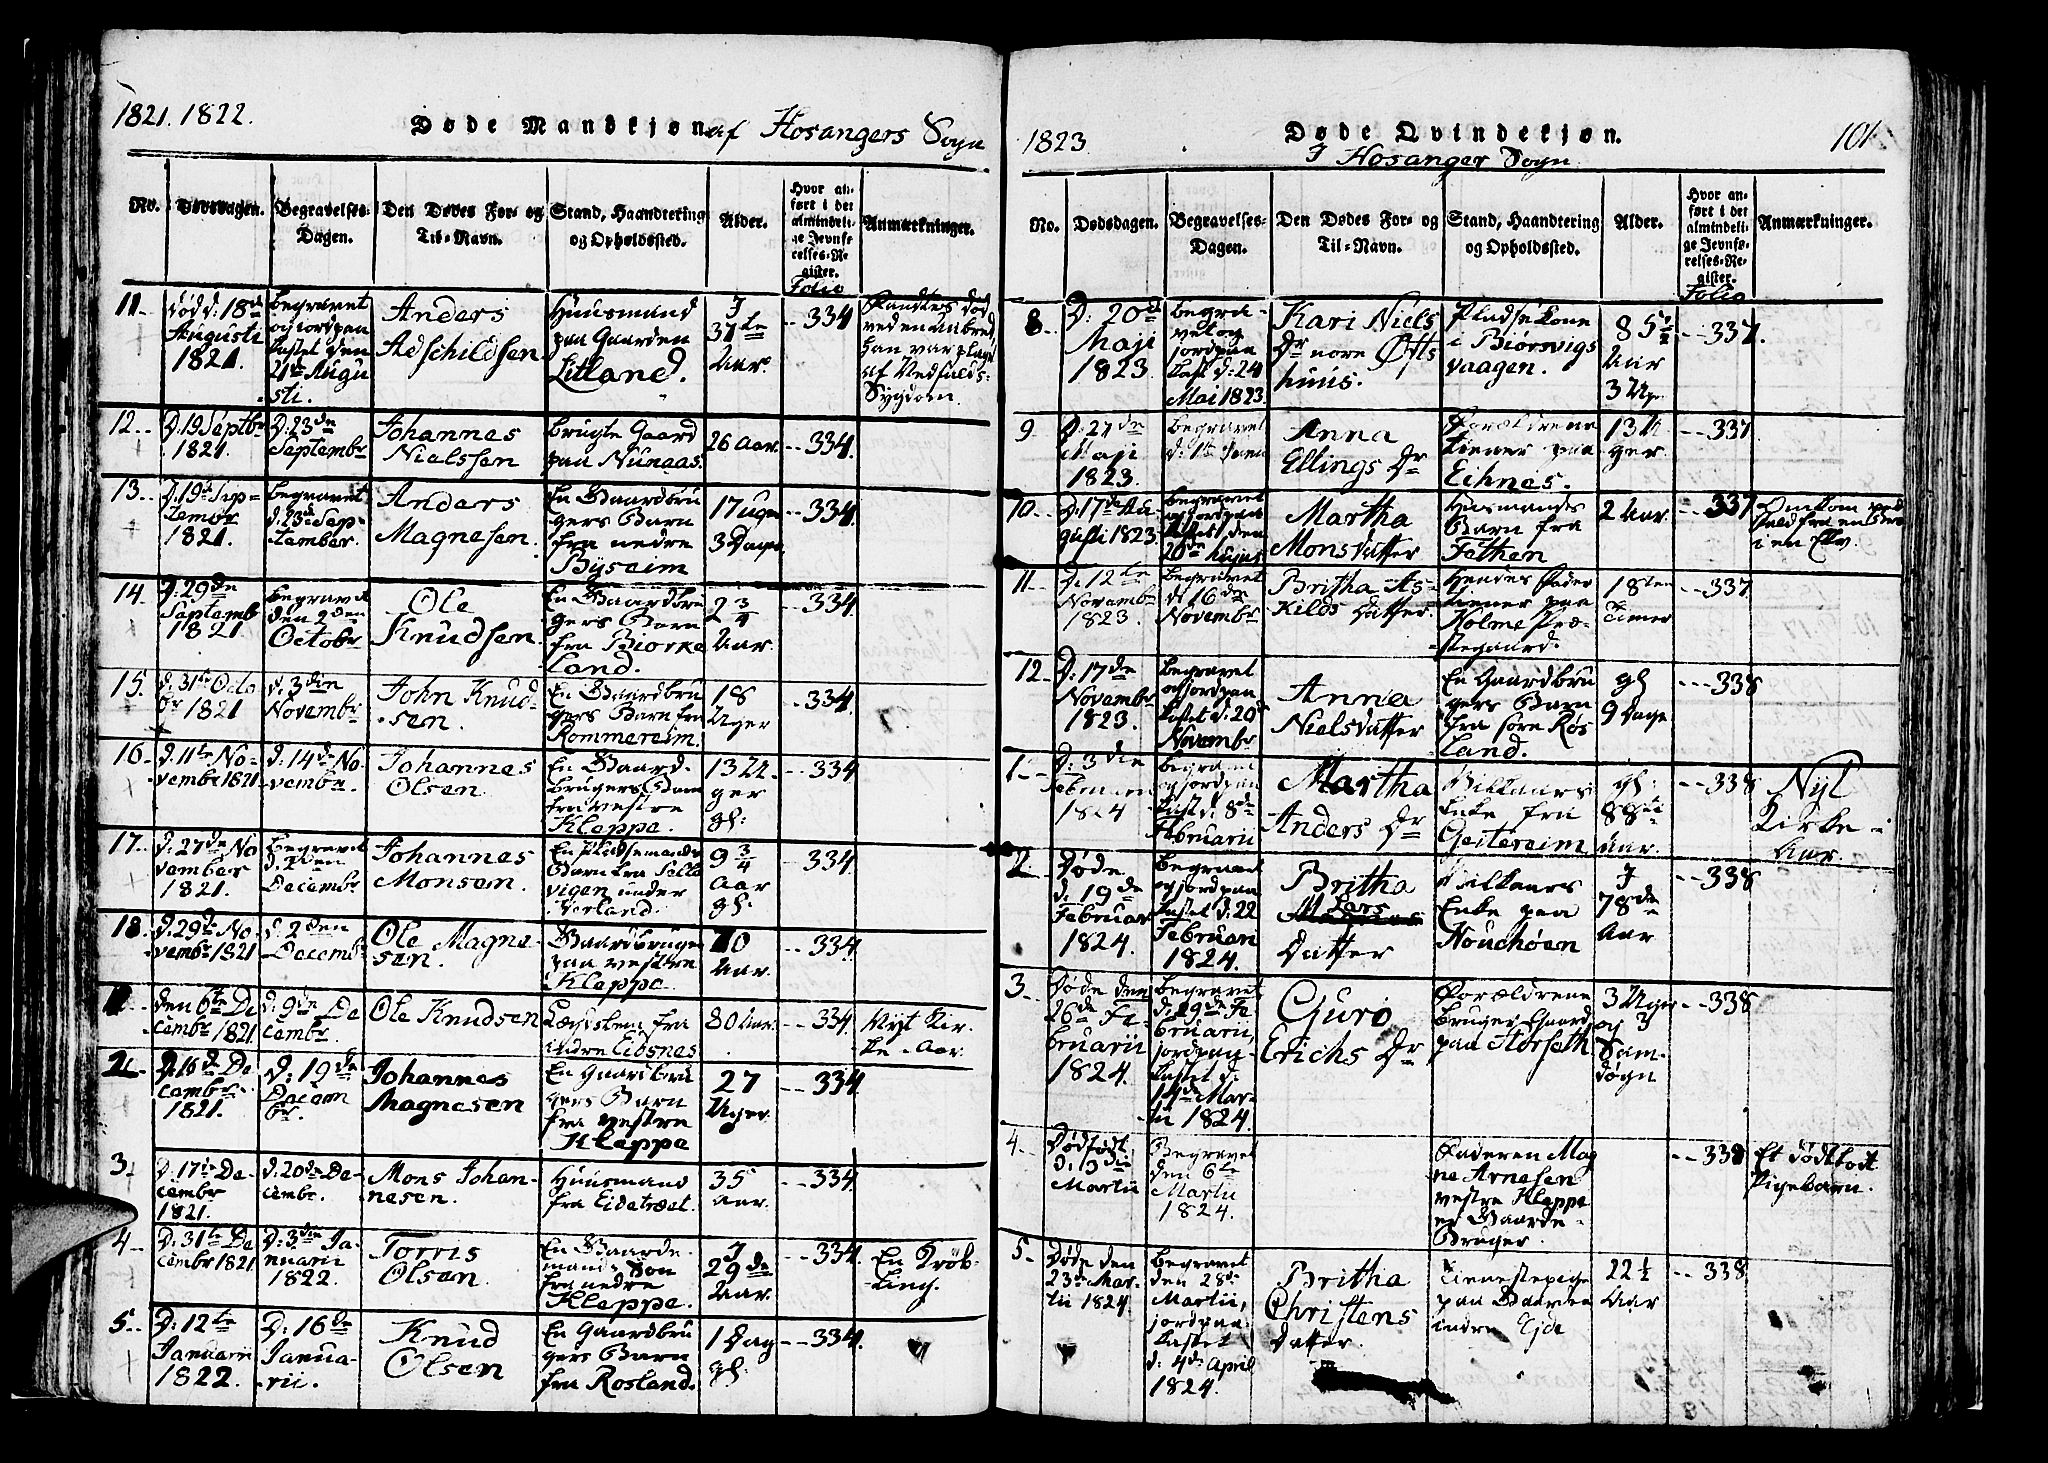 1821. 1822.
Døde Mandkjøn af Hosangers Sogn
No.
Dødsdagen.
Begravelses-
Dagen.
Den Dødes For- og
Til-Navn.
Stand, Haandtering
og Opholdssted.
Alder.
Hvor an-
ført i det
almindeli-
ge Jevnfø-
relses-Re-
gister.
Folio
Anmærkninger.
11
Død d: 18de
Augusti
1821.
begravet
og jordpaa
kastet den
21de Augu
sti.
Anders
Adschildsen
Huusmand
paa Gaarden
Litland.
I
37te
Aar.
334
Fandtes død
ved en
han var plaget
af Nedfalds-
Sygdom.
12
D. 19 Septbr
1821.
D. 23de
Septembr
Johannes
Nielssen
brugte Gaard
paa Nunaas.
26 Aar.
334.
13
D. 19te Sep-
tembr
1821.
begravet
d. 23de Sep-
tember.
Anders
Magnesen.
En Gaardbru
gers Barn
fra nedre
Byseim
17 uger
3 Dage
334.
14
D. 29de
Septemb
1821.
begravet
den 2den
Octobr
Ole
Knudsen
En Gaardbru
gers Barn
fra Biorke
land.
2 3/4
Aar.
334
15
d. 31te Octo
br 1821
d. 3die
Novembr
John Knud-
sen.
En Gaardbru
gers Barn fra
Rommereim.
18
Uger
334.
16
d. 11te No-
vembr 1821
d: 14de No-
vembr.
Johannes
Olsen.
En Gaard-
brugers Barn
fra vestre
Kleppe.
13 U-
ger
gl:
334
17
d. 27de No
vember
1821.
begravet
d. 2den
Decembr
Johannes
Monsen.
En Pladsemands
Barn fra
vigen under
Verland.
9 3/4
Aar
gl:
334
18.
d. 29de No-
vembr 1821
d. 2den
Decemb
Ole Magne-
sen.
Gaardbruger
paa vestre
Kleppe
70
Aar.
334.
1
den 6te De
cembr 1821
d. 9de De
cembr.
Ole Knudsen
Lægdslem fra
indre Eidsnes
80 Aar.
334
Nyt Kir-
ke-Aar.
2
D. 16de De
cembr
1821.
D: 19de
Decem
br.
Johannes
Magnesen
En Gaardbru
gers Barn
fra vestre
Kleppe
27
Uger.
334
3
D. 17de De-
cembr
1821.
d. 20de De-
cembr.
Mons Johan-
nesen.
Huusmand
fra Eidetræet.
35
Aar.
334
4
D. 31te De
cembr 1821
D: 3die Ja-
nuarii
1822.
Torris
Olsen.
En Gaarde
mands Søn
fra nedre
Kleppe.
I
29de
Aar.
334
En Krøb-
ling.
5
D: 12te
Januarii
1822.
D: 16de
Janua-
rii.
Knud
Olsen
En Gaardbru
gers Barn
fra Rosland.
1 Dag
gl:
334.
1823
Døde Qvindekjøn.
I Hosanger Sogn
101
No.
Dødsdagen.
Begravelses-
Dagen.
Den Dødes For- og
Til-Navn.
Stand, Haandtering
og Opholdssted.
Alder.
Hvor an-
ført i det
almindeli-
ge Jevnfø-
relses-Re-
gister.
Folio
Anmærkninger.
8
D: 20de
Maji
1823.
begra-
vet og
jordpaa
kast d: 24
Mai 1823.
Kari Niels
Dr nore Øfts
huus.
Pladsekone
i Biørsvigs
vaagen.
85 1/2
Aar
337.
9
D: 27de
Maji
1823.
begravet
d: 1te Juni
Anna
Ellings Dr
Forældrene
tiener paa
Eiknes.
13 U
ger
337
10
D: 17de Au-
gusti 1823
begravet
og jordpaa
kastet den
20de hujus
Martha
Monsdatter
Huusmands
Barn fra
Fathen
2 Aar.
337
Omkom ved
fald fra en
i en Elv.
11
D. 12te
Novembr
1823.
begravet
d: 16de
Novembr
Britha As-
kilds Datter
Hendes Fader
tiener paa
Holme Præ-
stegaard.
18ten
Timer
337
12
D: 17de
Novembr
1823.
begravet
og jordpaa
kastet d: 20de
Novembr
Anna
Nielsdatter
En Gaardbru
gers Barn
fra søre Røs
land.
gl
9 Dage
338
1
D: 3die
Februarii
1824
begravet
og jordpaa
kast d: 8de
Februarii
Martha
Anders Dr
Vilkaars
Enke fra
Geitereim
gl:
88te
Aar.
338
Nyt
Kirke-
Aar.
2
Døde
d. 19de
Februar
1824.
begravet
og jordpaa
kastet d: 22
Februari
1824.
Britha
Lars
Datter
Vilkaars
Enke paa
Nouchøen
I
78de
Aar
338
3
Døde den
26de Fe-
bruarii
1824.
begravet
d. 29de Fe-
bruarii,
jordpaa-
kastet d:
14de Mar-
tii 1824.
Guro
Erichs Dr
Forældrene
bruger Gaard
paa Horseth
3 Uger
og 3
Sam-
døgn
338
4
Dødfødt
d. 3die
Martii
Begravet
den 6te
Martii
1824.
Faderen Mag
ne Arnesen
vestre Kleppe
er Gaard-
Bruger.
338
Et dødfødt
Pigebarn.
5
Døde den
23de Mar-
tii 1824.
begravet
den 28de
Martii,
jordpaa-
kastet
d: 4de April
1824.
Britha
Christens
Datter.
Tienestepige
paa Gaarden
indre Eide
22 1/2
Aar
338